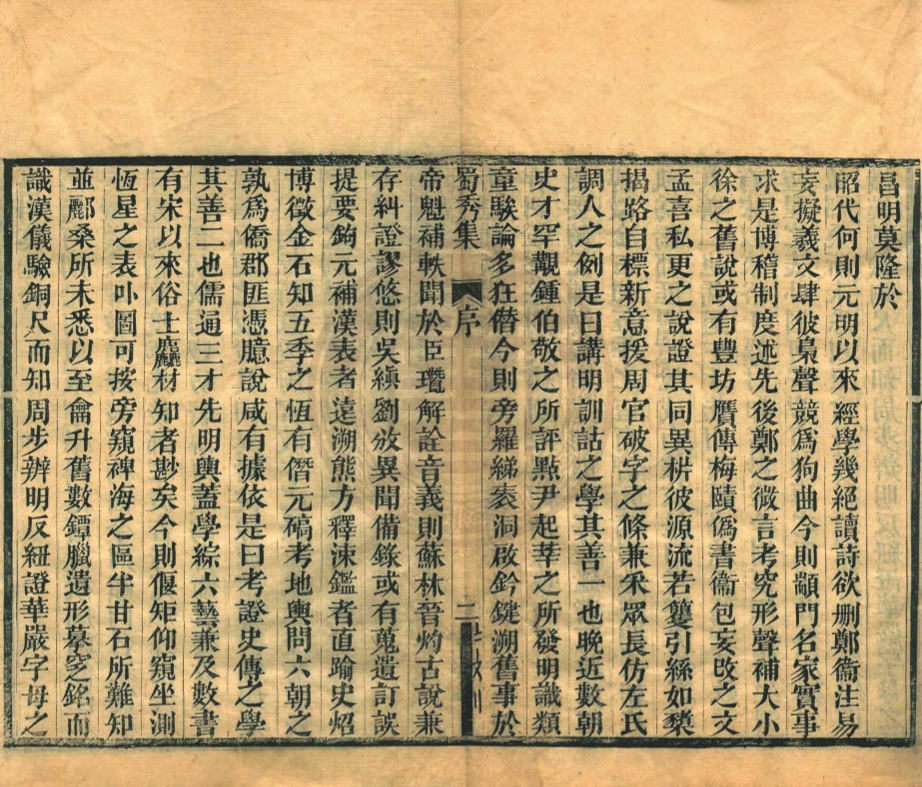 昌明莫隆於
昭代何則元明以來經學幾絕讀詩欲刪鄭衞注易
妄擬羲文肆彼梟聲競爲狗曲今則顓門名家實事
求是博稽制度述先後鄭之微言考究形聲補大小
徐之舊說或有豐坊贋傳梅賾僞書衞包妄改之文
孟喜私更之說證其同異枿彼源流若篗引絲如槷
揭路自標新意援周官破字之條兼采眾長仿左氏
調人之例是曰講明訓詁之學其善一也晚近數朝
史才罕覯鍾伯敬之所評點尹起莘之所發明識類
童騃論多狂僭今則旁羅綈袠洞啟鈐鍵溯舊事於
蜀秀集 序 二
帝魁補軼聞於臣瓚解詮音義則蘇林晉灼古說兼
存糾證謬悠則吳縝劉攽異聞備錄或有蒐遺訂誤
提要鉤元補漢表者遠溯熊方釋涑鑑者直踰史炤
博徵金石知五季之恆有僭元碻考地輿問六朝之
孰爲僑郡匪憑臆說咸有據依是曰考證史傳之學
其善二也儒通三才先明輿蓋學綜六藝兼及數書
有宋以來俗士麤材知者尠矣今則偃矩仰窺坐測
恆星之表卟圖可按旁窺裨海之區半甘石所難知
並酈桑所未悉以至龠升舊數鐔臘遺形摹窆銘而
識漢儀驗銅尺而知周步辨明反紐證華嚴字母之